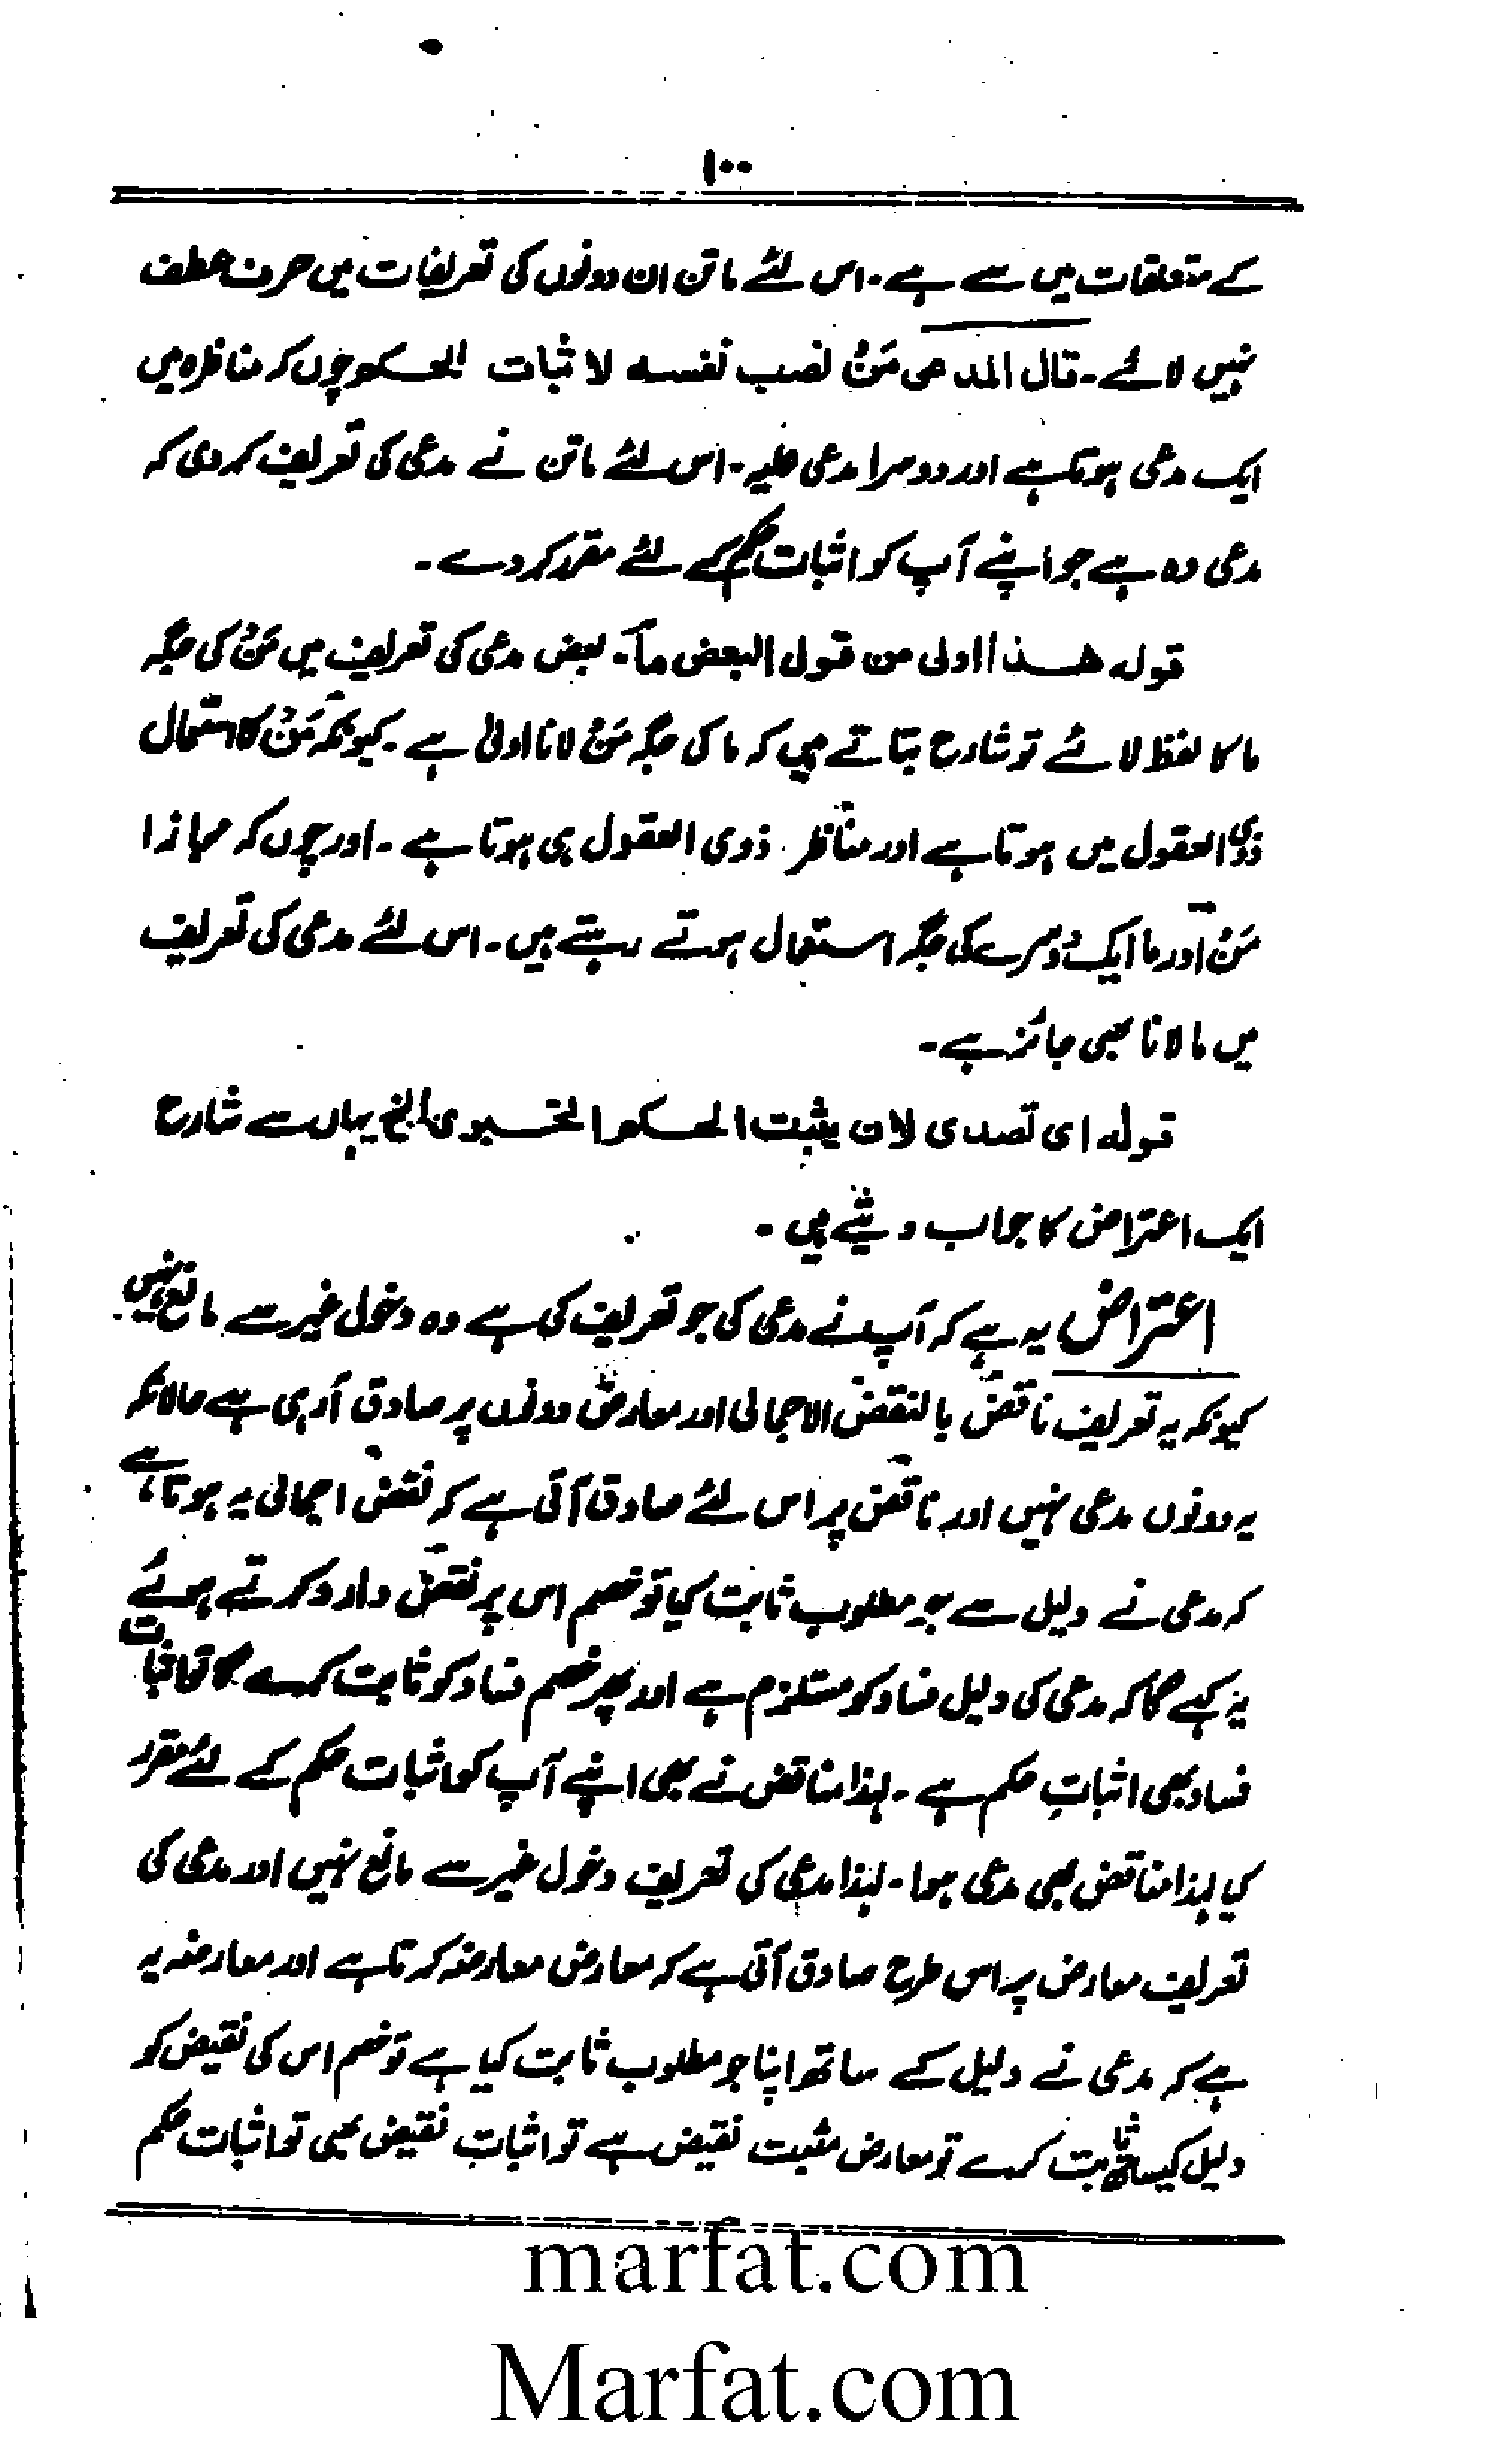 ۱۰۰
کے متعلقات میں سے ہے۔ اس لئے ماتن ان دونوں کی تعریفات میں حرف عطف
نہیں لائے۔ قال المدعی مَنْ نصب نفسه لاثبات الحکم چوں کہ مناظرہ میں
ایک مدعی ہوتا ہے اور دوسرا مدعی علیہ۔ اس لئے ماتن نے مدعی کی تعریف کر دی کہ
مدعی وہ ہے جو اپنے آپ کو اثبات حکم کے لئے مقرر کر دے۔
قوله هذا اولی من قول البعض ما۔ بعض مدعی کی تعریف میں مَنْ کی جگہ
ما کا لفظ لائے تو شارح بتاتے ہیں کہ ما کی جگہ مَنْ لانا اولیٰ ہے۔ کیونکہ مَنْ کا استعمال
ذوی العقول میں ہوتا ہے اور مناظر ذوی العقول ہی ہوتا ہے۔ اور چوں کہ مجازا
مَنْ اور ما ایک دوسرے کی جگہ استعمال ہوتے رہتے ہیں۔ اس لئے مدعی کی تعریف
میں ما لانا بھی جائز ہے۔
قوله ای تصدی لان یثبت الحکم الخبری الخ یہاں سے شارح
ایک اعتراض کا جواب دیتے ہیں۔
اعتراض یہ ہے کہ آپ نے مدعی کی جو تعریف کی ہے وہ دخول غیر سے مانع نہیں۔
کیونکہ یہ تعریف ناقض بالنقض الاجمالی اور معارض دونوں پر صادق آرہی ہے حالانکہ
یہ دونوں مدعی نہیں اور ناقض پر اس لئے صادق آتی ہے کہ نقض اجمالی یہ ہوتا ہے
کہ مدعی نے دلیل سے جو مطلوب ثابت کیا تو خصم اس پر نقض وارد کرتے ہوئے
یہ کہے گا کہ مدعی کی دلیل فساد کو مستلزم ہے اور پھر خصم فساد کو ثابت کرے گا تو اثبات
فساد بھی اثباتِ حکم ہے۔ لہذا مناقض نے بھی اپنے آپ کو اثبات حکم کے لئے مقرر
کیا لہذا مناقض بھی مدعی ہوا۔ لہذا مدعی کی تعریف دخول غیر سے مانع نہیں اور مدعی کی
تعریف معارض پر اس طرح صادق آتی ہے کہ معارض معارضہ کرتا ہے اور معارضہ یہ
ہے کہ مدعی نے دلیل کے ساتھ اپنا جو مطلوب ثابت کیا ہے تو خصم اس کی نقیض کو
دلیل کیساتھ ثابت کرے تو معارض مثبت نقیض ہے تو اثباتِ نقیض بھی تو اثبات حکم
marfat.com
Marfat.com